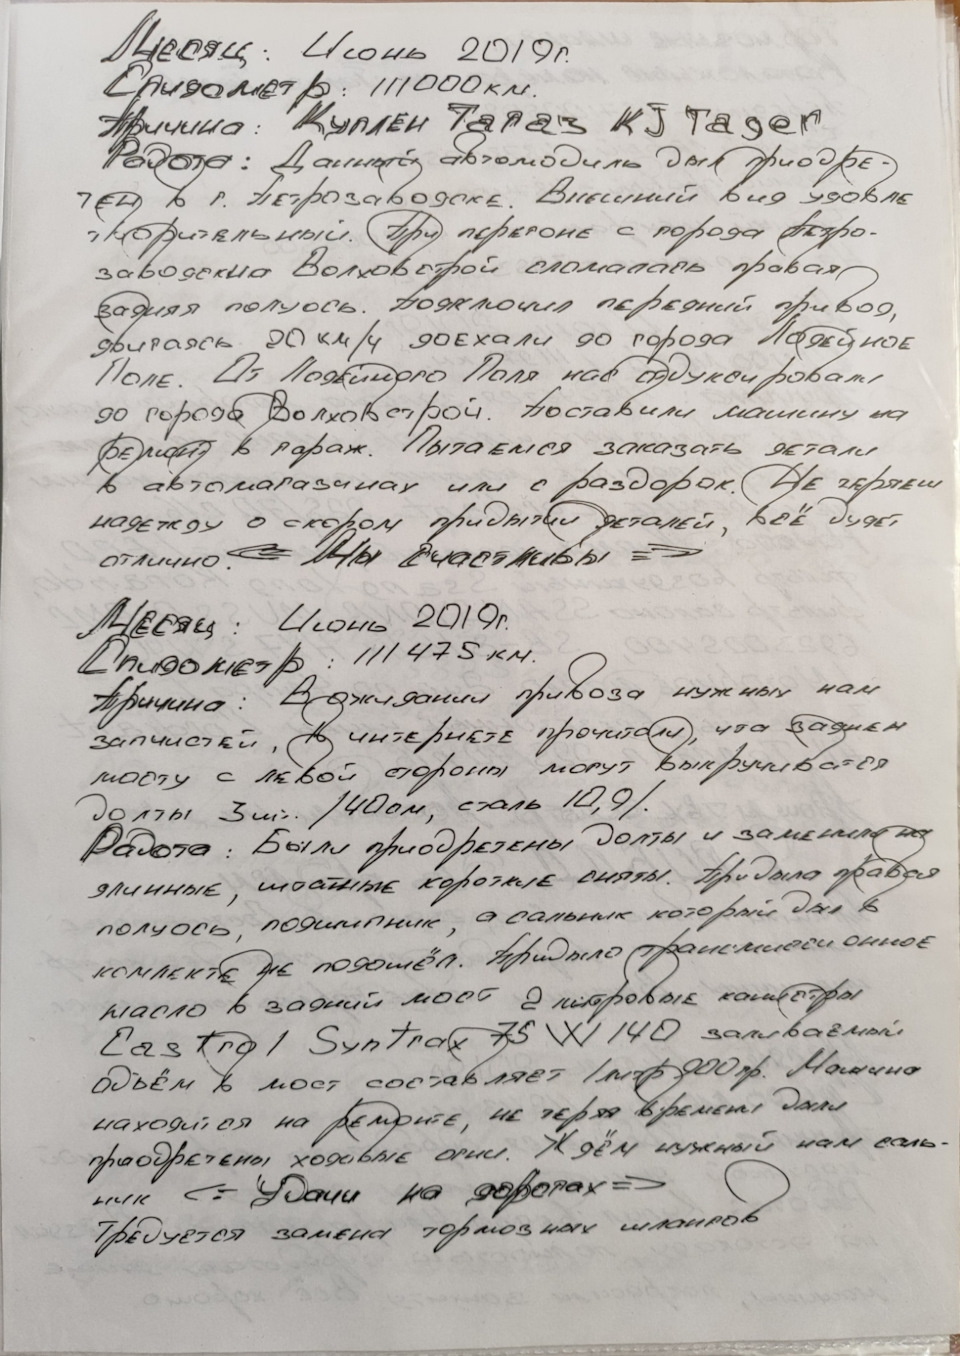 Месяц: Июнь 2019г.
Спидометр: 111000км.
Причина: Куплен Тагаз KJ Tager
Работа: Данный автомобиль был приобре-
тен в г. Петрозаводске. Внешний вид удовле
творительный. При перегоне с города Петро-
заводска Волховстрой сломалась правая
задняя полуось. Подключил передний привод,
двигаясь 20 км/ч доехали до города Лодейное
Поле. От Лодейного Поля нас отбуксировали
до города Волховстрой. Поставили машину на
ремонт в гараж. Пытаемся заказать детали
в автомагазинах или с разборок. Не теряем
надежду о скором прибытии деталей, всё будет
отлично. <= Мы счастливы =>
Месяц: Июнь 2019г.
Спидометр: 111475 км.
Причина: В ожидании привоза нужных нам
запчастей, в интернете прочитали, что заднем
мосту с левой стороны могут выкручиватся
болты 3шт. /40ом, сталь 10,9/.
Работа: Были приобретены болты и заменила на
длинные, штатные короткие сняты. Прибыла правая
полуось, подшипник, а сальник который был в
комлекте не подошёл. Прибыло трансмиссионное
масло в задний мост 2 литровые канистры
Castrol Syntrax 75 W 140 заливаемый
объём в мост составляет 1литр 900гр. Машина
находится на ремонте, не теряя времени были
приобретены ходовые огни. Ждём нужный нам саль-
ник <= Удачи на дорогах =>
Требуется замена тормозных шлангов